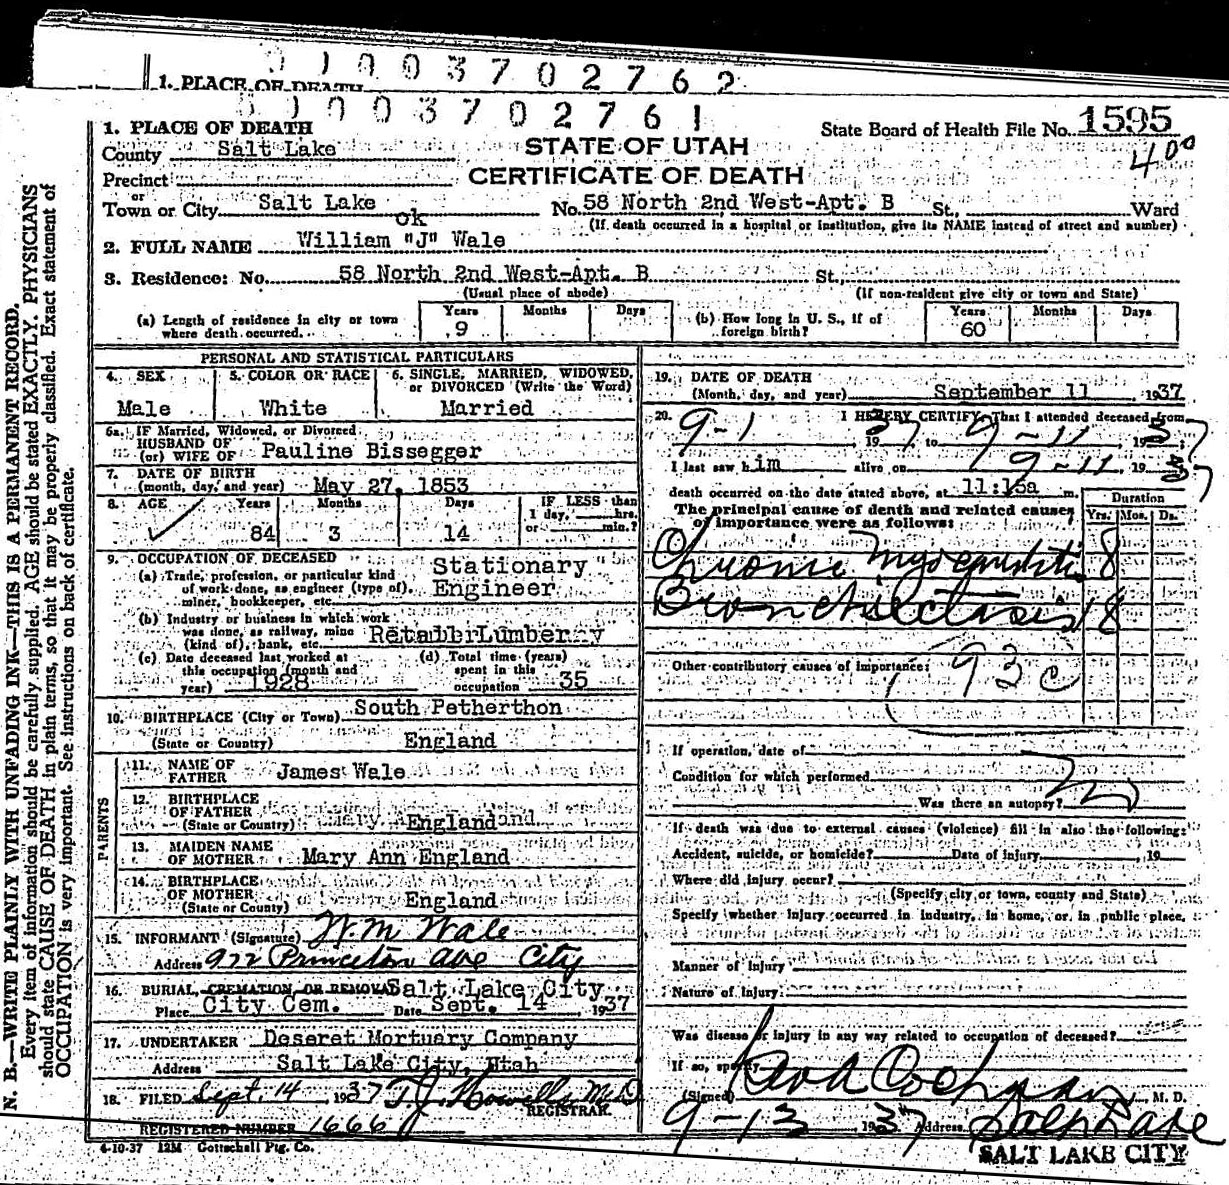 0 1 0 0 3 7 0 2 7 6 2
1. PLACE OF DEATH
0 1 0 0 3 7 0 2 7 6 1
1. PLACE OF DEATH
State Board of Health File No. 1595
County Salt Lake
STATE OF UTAH
400
Precinct
CERTIFICATE OF DEATH
or
Town or City Salt Lake No. 58 North 2nd West-Apt. B St., Ward
ok
(If death occurred in a hospital or institution, give its NAME instead of street and number)
2. FULL NAME William "J" Wale
3. Residence: No. 58 North 2nd West-Apt. B St.
(Usual place of abode) (If non-resident give city or town and State)
(a) Length of residence in city or town where death occurred. Years 9 Months Days
(b) How long in U. S., if of foreign birth? Years 60 Months Days
PERSONAL AND STATISTICAL PARTICULARS
4. SEX Male
5. COLOR OR RACE White
6. SINGLE, MARRIED, WIDOWED, or DIVORCED (Write the Word) Married
6a. IF Married, Widowed, or Divorced
HUSBAND OF
(or) WIFE OF Pauline Bissegger
7. DATE OF BIRTH
(month, day, and year) May 27, 1853
8. AGE Years 84 Months 3 Days 14 IF LESS than 1 day, hrs. or min.?
9. OCCUPATION OF DECEASED
(a) Trade, profession, or particular kind of work done, as engineer (type of), miner, bookkeeper, etc. Stationary Engineer
(b) Industry or business in which work was done, as railway, mine (kind of), bank, etc. Retail Lumber
(c) Date deceased last worked at this occupation (month and year) 1928
(d) Total time (years) spent in this occupation 35
10. BIRTHPLACE (City or Town) South Petherthon
(State or Country) England
PARENTS
11. NAME OF FATHER James Wale
12. BIRTHPLACE OF FATHER
(State or Country) England
13. MAIDEN NAME OF MOTHER Mary Ann England
14. BIRTHPLACE OF MOTHER
(State or Country) England
15. INFORMANT (Signature) W.M Wale
Address 922 Princeton Ave City
16. BURIAL, CREMATION OR REMOVAL Salt Lake City
Place City Cem. Date Sept. 14, 1937
17. UNDERTAKER Deseret Mortuary Company
Address Salt Lake City, Utah
18. FILED Sept. 14, 1937 T J. Howells M.D
REGISTRAR.
REGISTERED NUMBER 1666
4-10-37 12M Gottschall Ptg. Co.
19. DATE OF DEATH
(Month, day, and year) September 11, 1937
20. I HEREBY CERTIFY, That I attended deceased from
9-1, 1937, to 9-11, 1937
I last saw him alive on 9-11, 1937
death occurred on the date stated above, at 11:15a m.
The principal cause of death and related causes of importance were as follows:
Duration
Yrs. Mos. Ds.
Chronic Myocarditis 8
Bronchiectasis 18
Other contributory causes of importance:
93 c
If operation, date of
Condition for which performed
Was there an autopsy? no
If death was due to external causes (violence) fill in also the following:
Accident, suicide, or homicide? Date of injury, 19
Where did injury occur?
(Specify city or town, county and State)
Specify whether injury occurred in industry, in home, or in public place.
Manner of injury
Nature of injury
Was disease or injury in any way related to occupation of deceased?
If so, specify
(Signed) Cochran, M. D.
9-13 1937 Address Salt Lake
SALT LAKE CITY
N. B.—WRITE PLAINLY WITH UNFADING INK—THIS IS A PERMANENT RECORD.
Every item of information should be carefully supplied. AGE should be stated EXACTLY. PHYSICIANS
should state CAUSE OF DEATH in plain terms, so that it may be properly classified. Exact statement of
OCCUPATION is very important. See instructions on back of certificate.